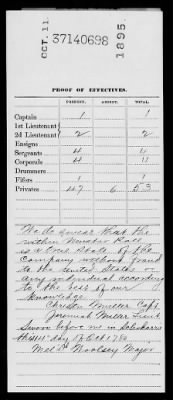 OCT. 11. 37140698 1895
PROOF OF EFFECTIVES.
PRESENT. ABSENT. TOTAL.
Captain 1 1
1st Lieutenant
2d Lieutenant 2 2
Ensigns
Sergeants 4 4
Corporals 4 4
Drummers
Fifers 1 1
Privates 47 6 53
We do swear that the
within Muster Roll
is a true State of the
Company without fraud
to the United States or
any individual according
to the best of our
knowledge.
Christn Muller Capt.
Jeremiah Muller Lieut
Sworn before me in Schoharie
this day of Oct 178
Mel Woolsey Major